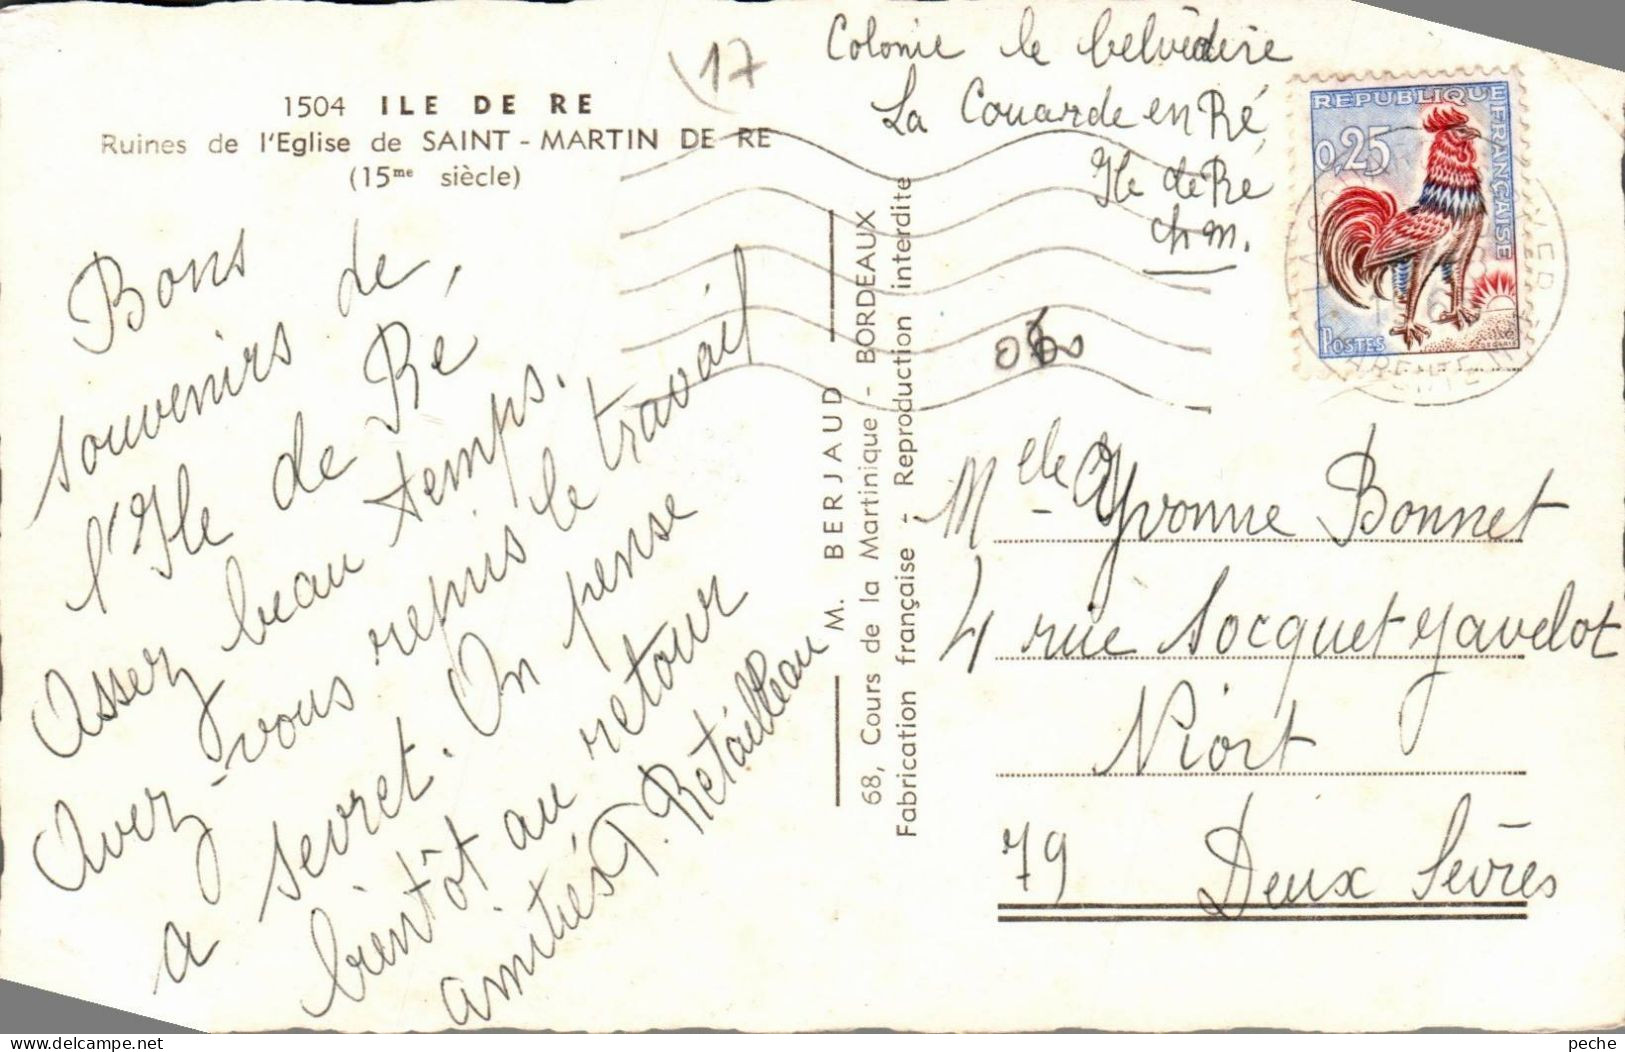 1504 ILE DE RE
Ruines de l'Eglise de SAINT - MARTIN DE RE
(15me siècle)
17
Colonie le belvédère
La Couarde en Ré,
Ile de Ré
ch m.
REPUBLIQUE FRANÇAISE
0,25
POSTES
Bons
souvenirs de,
l'Ile de Ré
Assez beau temps.
Avez-vous repris le travail
a sevret. On pense
bientôt au retour
amitiés T. Retailleau
M. BERJAUD
68, Cours de la Martinique - BORDEAUX
Fabrication française - Reproduction interdite
Melle Yvonne Bonnet
4 rue Socquet Javelot
Niort
79 Deux Sèvres
peche